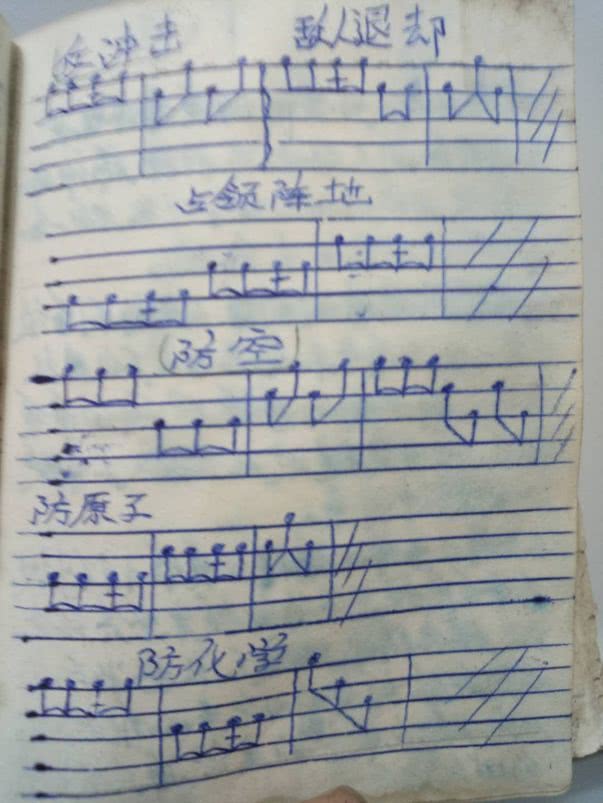 反冲击 敌人退却
占领阵地
(防空)
防原子
防化学